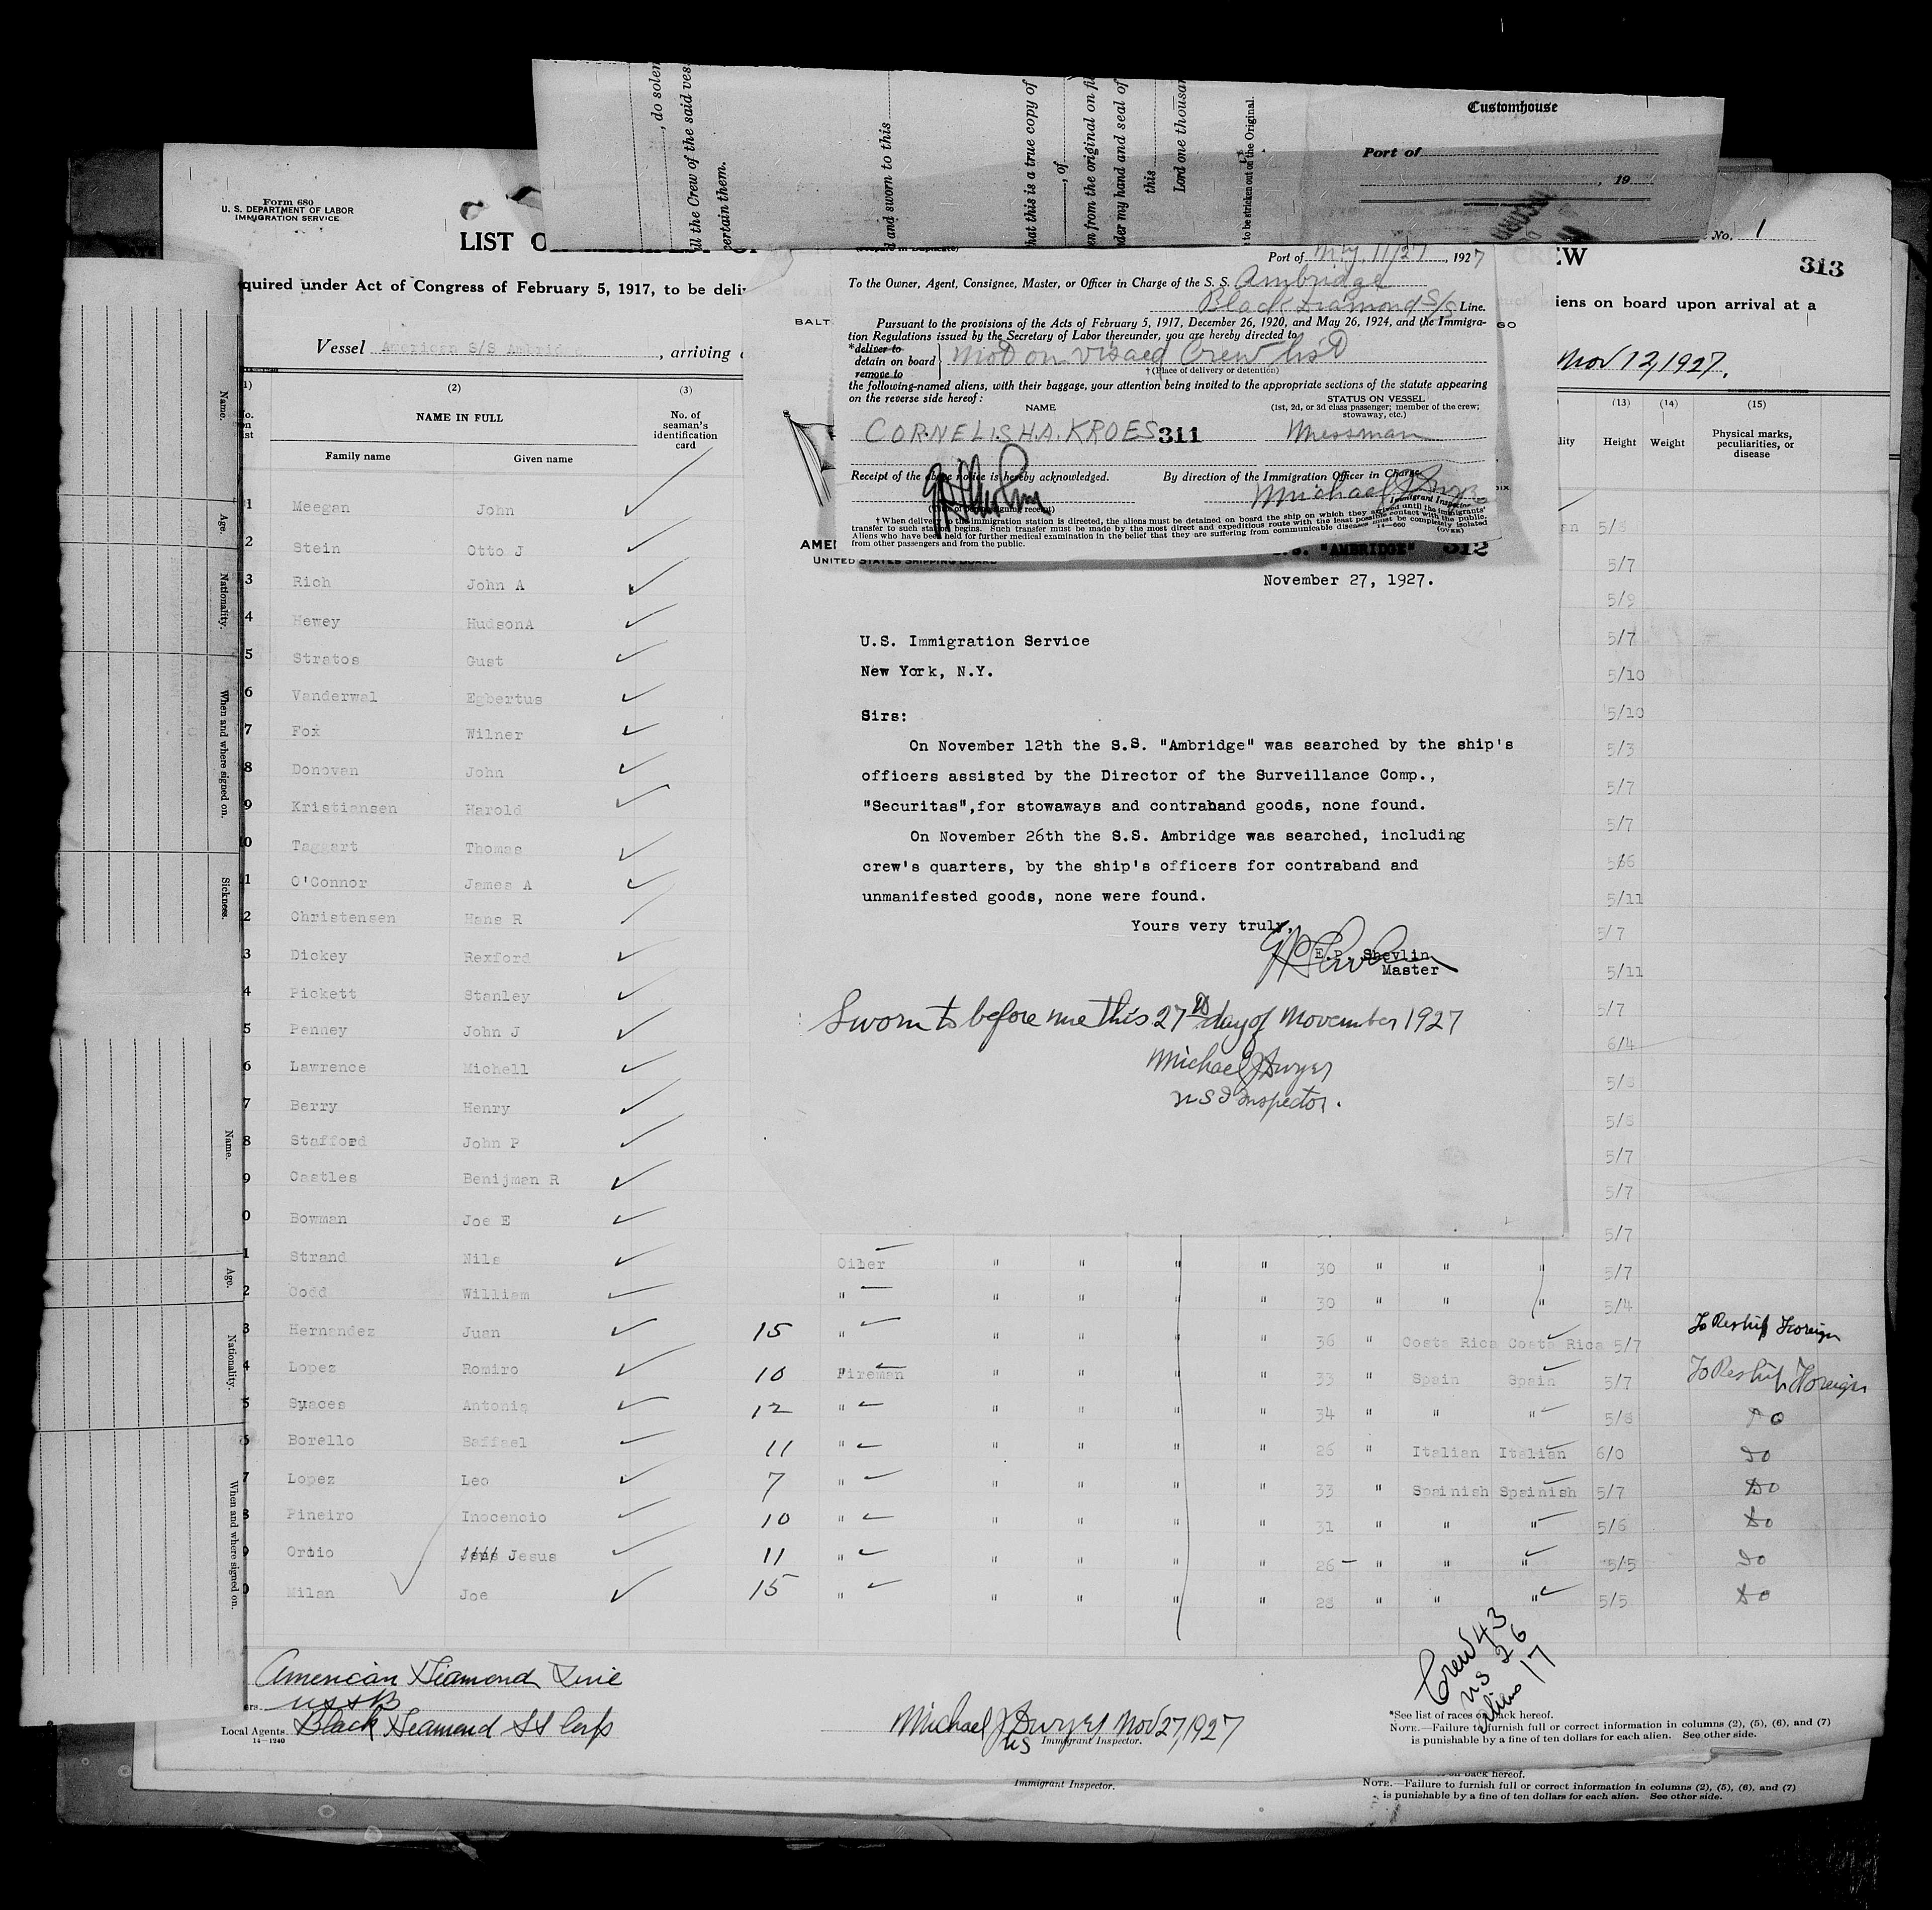 Customhouse
Port of
, 19
, do solem
ll the Crew of the said ves
certain them.
d and sworn to this
hat this is a true copy of
, of
en from the original on fi
der my hand and seal of
this
Lord one thousan
to be stricken out on the Original.
Form 680
U. S. DEPARTMENT OF LABOR
IMMIGRATION SERVICE
LIST O
EW
No. 1
313
quired under Act of Congress of February 5, 1917, to be deliv
iens on board upon arrival at a
Vessel American S/S Ambrid , arriving
Nov 12, 1927.
Port of May, 11/27, 1927
To the Owner, Agent, Consignee, Master, or Officer in Charge of the S. S. Ambridge
Black Diamond S/S Line.
BALT
Pursuant to the provisions of the Acts of February 5, 1917, December 26, 1920, and May 26, 1924, and the Immigra-
tion Regulations issued by the Secretary of Labor thereunder, you are hereby directed to
*deliver to
detain on board
remove to
Not on visaed Crew list
† (Place of delivery or detention)
the following-named aliens, with their baggage, your attention being invited to the appropriate sections of the statute appearing
on the reverse side hereof:
NAME
STATUS ON VESSEL
(1st, 2d, or 3d class passenger; member of the crew;
stowaway, etc.)
CORNELIS H.A. KROES 311 Messman
Receipt of the above notice is hereby acknowledged.
By direction of the Immigration Officer in Charge.
Michael J Dwyer
Immigrant Inspector
† When delivery to the immigration station is directed, the aliens must be detained on board the ship on which they arrived until the immigrants'
transfer to such station begins. Such transfer must be made by the most direct and expeditious route with the least possible contact with the public.
Aliens who have been held for further medical examination in the belief that they are suffering from communicable diseases must be completely isolated
from other passengers and from the public.
14—600
(OVER)
AMER
UNITED STATES SHIPPING BOARD
S.S. "AMBRIDGE" 312
November 27, 1927.
U.S. Immigration Service
New York, N.Y.
Sirs:
On November 12th the S.S. "Ambridge" was searched by the ship's
officers assisted by the Director of the Surveillance Comp.,
"Securitas",for stowaways and contraband goods, none found.
On November 26th the S.S. Ambridge was searched, including
crew's quarters, by the ship's officers for contraband and
unmanifested goods, none were found.
Yours very truly,
E.P. Shevlin
Master
Sworn to before me this 27th day of November 1927
Michael J Dwyer
US Inspector.
(2) (3) (13) (14) (15)
NAME IN FULL
Family name Given name
No. of
seaman's
identification
card
Height Weight
Physical marks,
peculiarities, or
disease
1 Meegan John 5/8
2 Stein Otto J 5/7
3 Rich John A 5/9
4 Hewey HudsonA 5/7
5 Stratos Gust 5/10
6 Vanderwal Egbertus 5/10
7 Fox Wilner 5/3
8 Donovan John 5/7
9 Kristiansen Harold 5/7
0 Taggart Thomas 566
1 O'Connor James A 5/11
2 Christensen Hans R 5/7
3 Dickey Rexford 5/11
4 Pickett Stanley 5/7
5 Penney John J 6/4
6 Lawrence Michell 5/8
7 Berry Henry 5/8
8 Stafford John P 5/7
9 Castles Benijman R 5/7
0 Bowman Joe E 5/7
1 Strand Nils Oiler " " " " 30 " " " 5/7
2 Codd William " " " " " 30 " " " 5/4
3 Hernandez Juan 15 " " " " " 36 " Costa Rica Costa Rica 5/7 To Reship Foreign
4 Lopez Romiro 10 Fireman " " " " 33 " Spain Spain 5/7 To Reship Foreign
5 Suaces Antonio 12 " " " " " 34 " " " 5/8 Do
6 Borello Raffael 11 " " " " " 26 " Italian Italian 6/0 Do
7 Lopez Leo 7 " " " " " 33 " Spainish Spainish 5/7 Do
8 Pineiro Inocencio 10 " " " " " 31 " " " 5/6 Do
9 Ortio Jesus 11 " " " " " 26 " " " 5/5 Do
0 Milan Joe 15 " " " " " 28 " " " 5/5 Do
Crew 43
US 26
aliens 17
American Diamond Line
USSB
Local Agents Black Diamond SS Corp
14—1240
Michael J Dwyer Nov 27, 1927
US Immigrant Inspector.
*See list of races on back hereof.
NOTE.—Failure to furnish full or correct information in columns (2), (5), (6), and (7)
is punishable by a fine of ten dollars for each alien. See other side.
Immigrant Inspector.
on back hereof.
NOTE.—Failure to furnish full or correct information in columns (2), (5), (6), and (7)
is punishable by a fine of ten dollars for each alien. See other side.
Name.
Age.
Nationality.
When and where signed on.
Sickness.
Name.
Age.
Nationality.
When and where signed on.